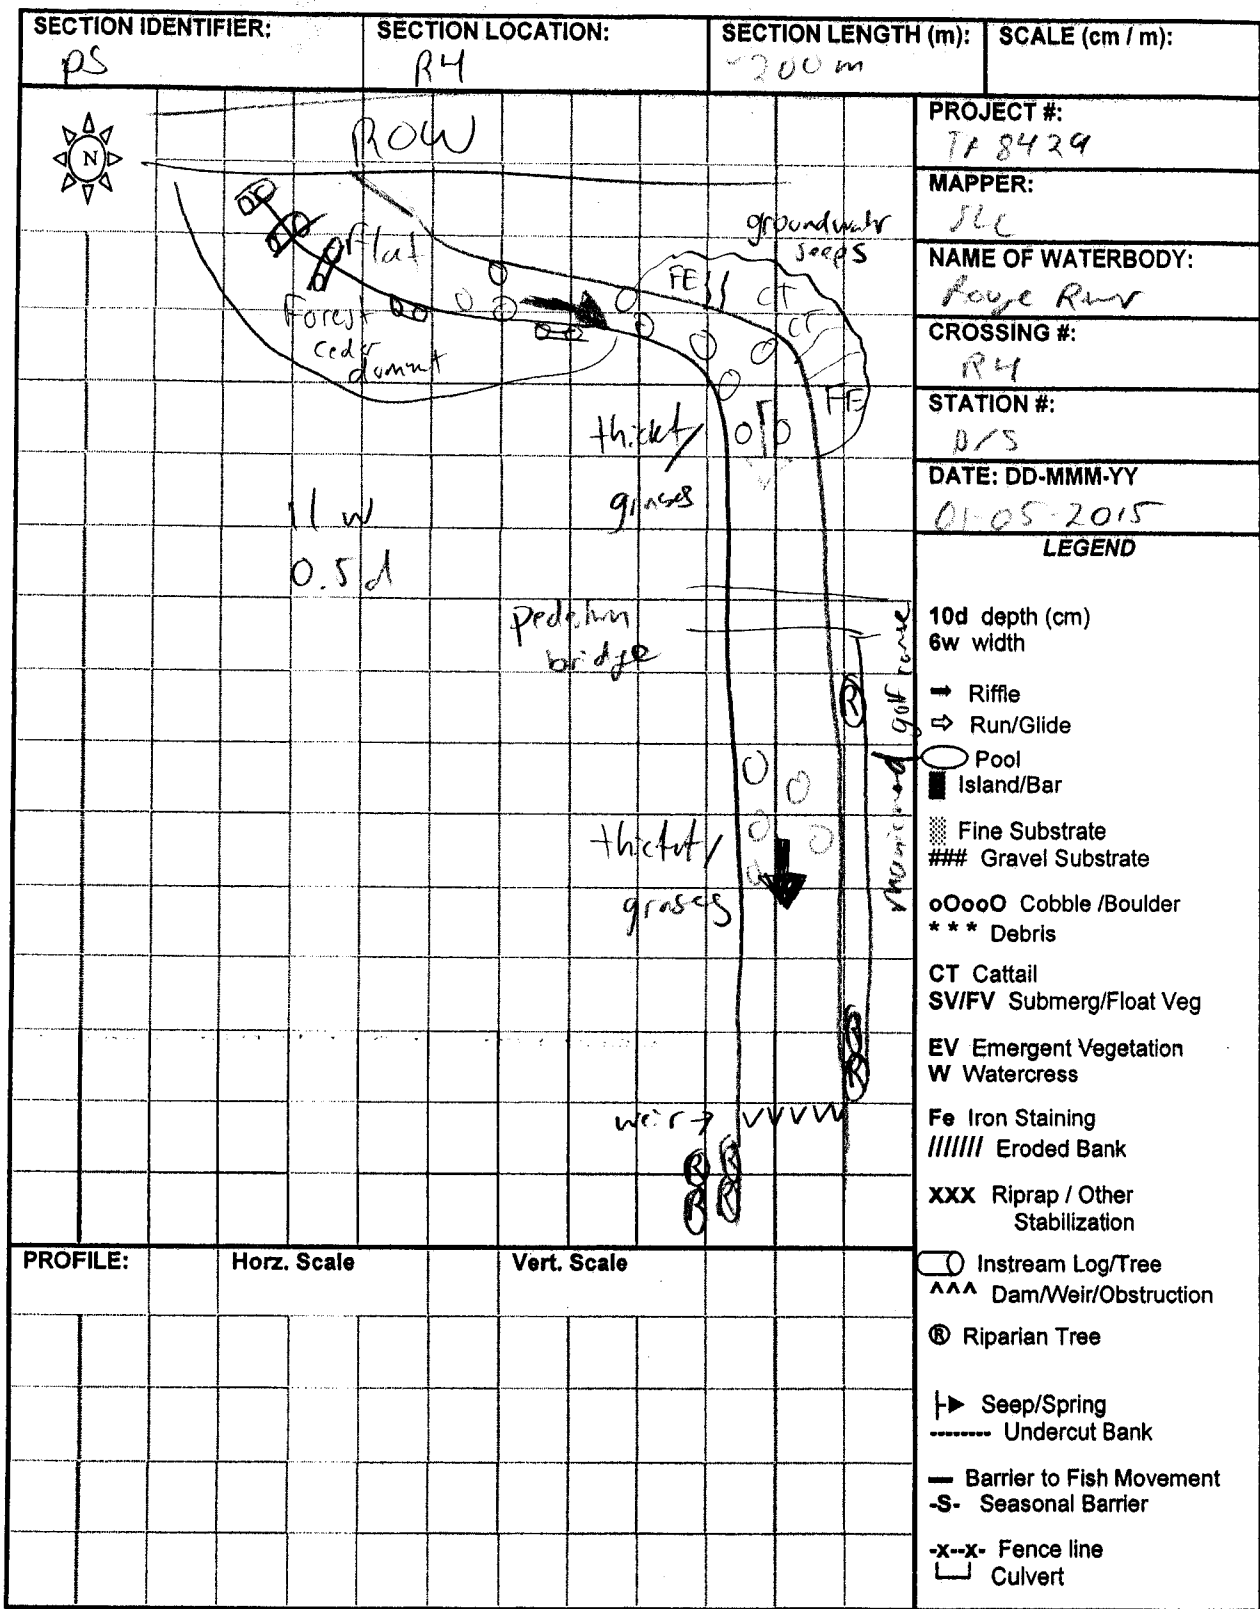 SECTION IDENTIFIER: SECTION LOCATION: SECTION LENGTH (m): SCALE (cm / m):
DS R4 ~200 m
N
ROW
Flat
Forest
groundwatr
seeps
FE
CT
CT
FE
thickt/
grasses
11 w
0.5 d
bridge
golf course
thicket/
grasses
R
R
R
weir → VVVVV
R R
R R
PROJECT #:
8429
MAPPER:
NAME OF WATERBODY:
Rouge River
CROSSING #:
R4
STATION #:
D/S
DATE: DD-MMM-YY
01-05-2015
LEGEND
10d depth (cm)
6w width
Riffle
Run/Glide
Pool
Island/Bar
Fine Substrate
### Gravel Substrate
oOooO Cobble /Boulder
* * * Debris
CT Cattail
SV/FV Submerg/Float Veg
EV Emergent Vegetation
W Watercress
Fe Iron Staining
/////// Eroded Bank
XXX Riprap / Other
Stabilization
Instream Log/Tree
^^^ Dam/Weir/Obstruction
® Riparian Tree
Seep/Spring
-------- Undercut Bank
Barrier to Fish Movement
-S- Seasonal Barrier
-x--x- Fence line
Culvert
PROFILE: Horz. Scale Vert. Scale